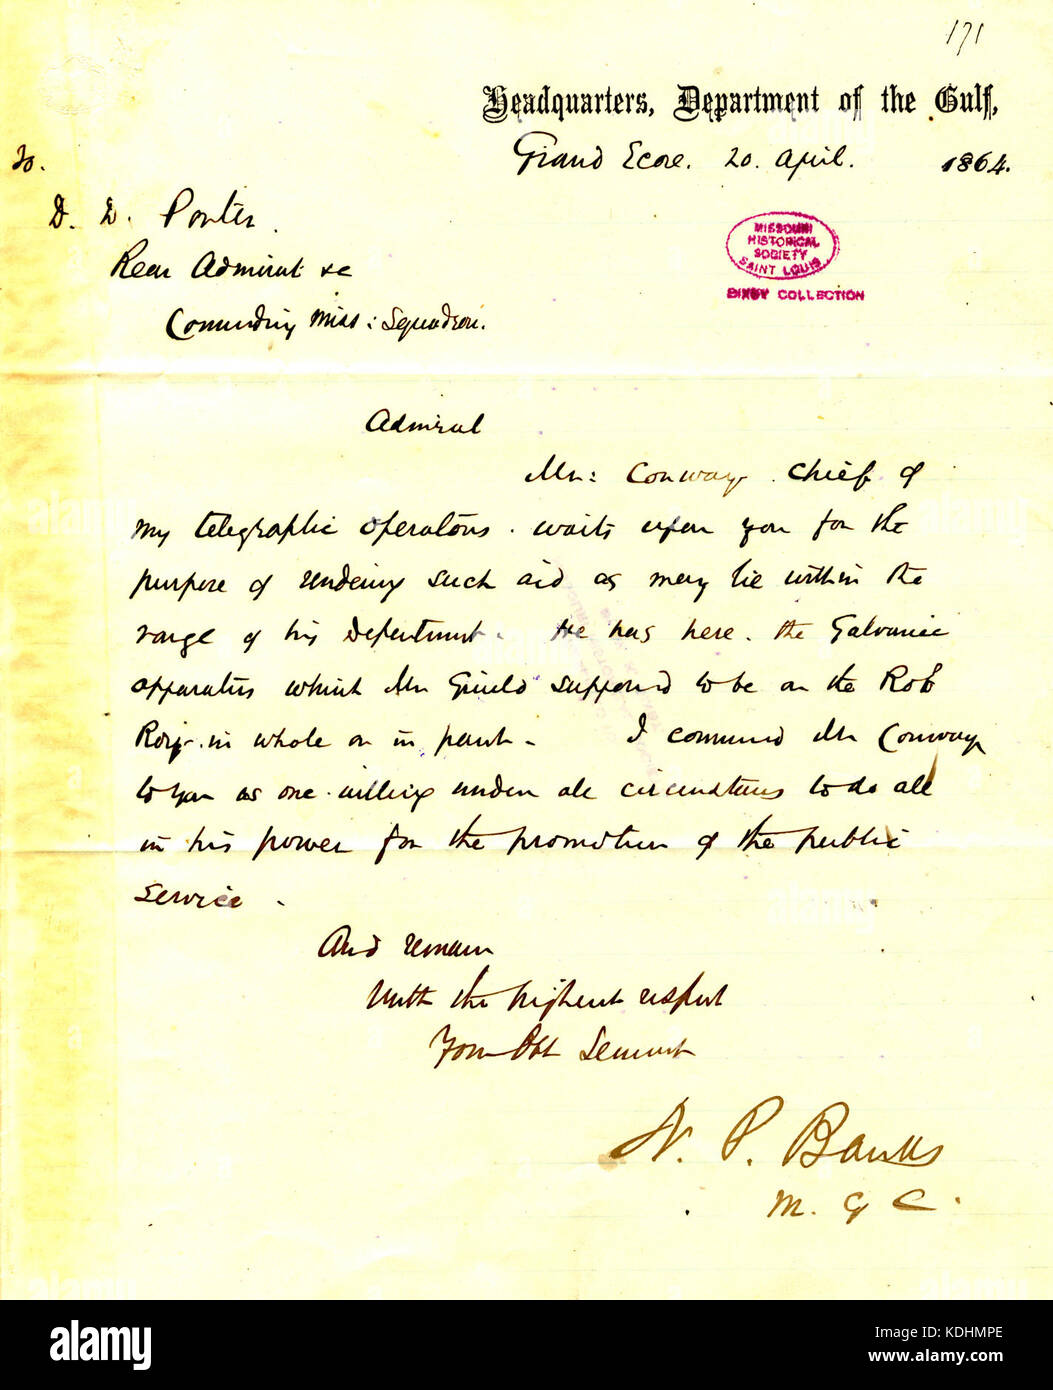 171
Headquarters, Department of the Gulf,
Grand Ecore. 20. April. 1864.
To.
D. D. Porter.
Rear Admiral &c
Commanding Miss: Squadron.
MISSOURI
HISTORICAL
SOCIETY
SAINT LOUIS
BIXBY COLLECTION
Admiral
Mr: Conway. Chief of
my telegraphic operators. waits upon you for the
purpose of rendering such aid as may lie within the
range of his Department. He has here. the Galvanic
apparatus which Mr supposed to be on the Rob
Roy. in whole or in part - I commend Mr Conway
to you as one willing under all circumstances to do all
in his power for the promotion of the public
service.
And remain
With the highest respect
Your Obt Servant
N. P. Banks
M. G. C.
alamy
a
alamy
Image ID: KDHMPE
www.alamy.com